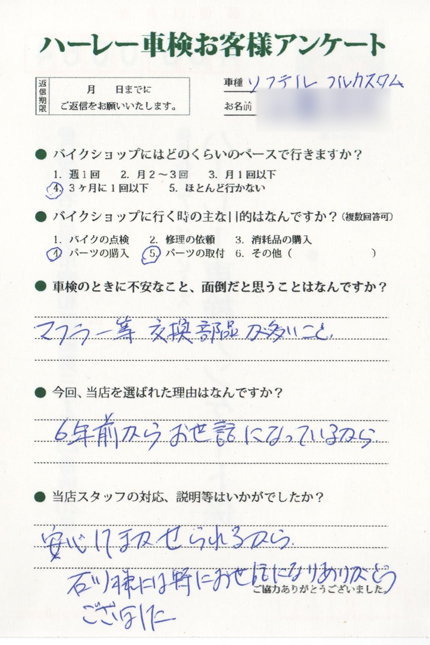 ハーレー車検お客様アンケート
返信期限
月 日までに
ご返信をお願いいたします。
車種 ソフテル フルカスタム
お名前
● バイクショップにはどのくらいのペースで行きますか？
1. 週1回 2. 月2〜3回 3. 月1回以下
4. 3ヶ月に1回以下 5. ほとんど行かない
● バイクショップに行く時の主な目的はなんですか？(複数回答可)
1. バイクの点検 2. 修理の依頼 3. 消耗品の購入
4. パーツの購入 5. パーツの取付 6. その他（ ）
● 車検のときに不安なこと、面倒だと思うことはなんですか？
マフラー等 交換部品が多いこと、
● 今回、当店を選ばれた理由はなんですか？
6年前からお世話になっているから
● 当店スタッフの対応、説明等はいかがでしたか？
安心してまかせられるから、
石川様には特にお世話になりありがとう
ご協力ありがとうございました。
ございました